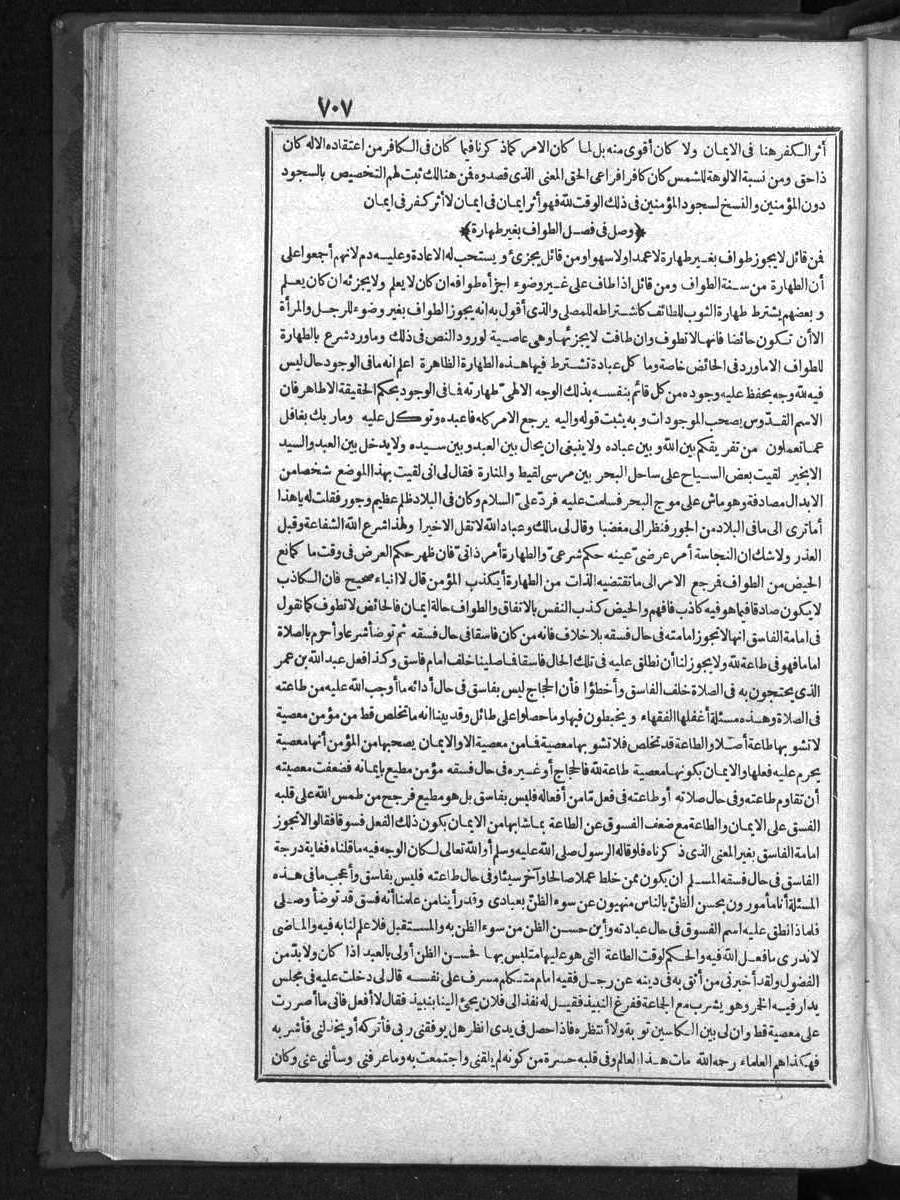 ٧٠٧
أثر الكفر هنا فى الايمان ولا كان أقوى منه بل لما كان الامر كما ذكرنا فيما كان فى الكافر من اعتقاده الاله كان
ذا حق ومن نسبة الالوهة للشمس كان كافرا فراعى الحق المعنى الذى قصدوه فن هنالك ثبت لهم التخصيص بالسجود
دون المؤمنين والنسخ لسجود المؤمنين فى ذلك الوقت لله فهو أثر ايمان فى ايمان لا أثر كفر فى ايمان
﴿وصل فى فصل الطواف بغير طهارة﴾
فن قائل لا يجوز طواف بغير طهارة لا عمدا ولا سهوا ومن قائل يجزئ ويستحب له الاعادة وعليه دم لانهم أجمعوا على
أن الطهارة من سنة الطواف ومن قائل اذا طاف على غير وضوء اجزأه طوافه ان كان لا يعلم ولا يجزئه ان كان يعلم
وبعضهم يشترط طهارة الثوب للطائف كاشتراطه للمصلى والذى أقول به انه يجوز الطواف بغير وضوء للرجل والمرأة
الا أن تكون حائضا فانها لا تطوف وان طافت لا يجزئها وهى عاصية لورود النص فى ذلك وما ورد شرع بالطهارة
للطواف الا ما ورد فى الحائض خاصة وما كل عبادة تشترط فيها هذه الطهارة الظاهرة اعلم انه ما فى الوجود حال ليس
فيه لله وجه يحفظ عليه وجوده من كل قائم بنفسه بذلك الوجه الالهى طهارته فما فى الوجود بحكم الحقيقة الا طاهر فان
الاسم القدّوس يصحب الموجودات وبه يثبت قوله واليه يرجع الامر كله فاعبده وتوكل عليه وما ربك بغافل
عما تعملون من تفريقكم بين الله وبين عباده ولا ينبغى ان يحال بين العبد وبين سيده ولا يدخل بين العبد والسيد
الا بخير لقيت بعض السياح على ساحل البحر بين مرسى لقيط والمنارة فقال لى انى لقيت بهذا الموضع شخصا من
الابدال مصادفة وهو ماش على موج البحر فسلمت عليه فردّ علىّ السلام وكان فى البلاد ظلم عظيم وجور فقلت له يا هذا
أما ترى الى ما فى البلاد من الجور فنظر الى مغضبا وقال لى مالك وعباد الله لا تقل الا خيرا ولهذا شرع الله الشفاعة وقبل
العذر ولا شك ان النجاسة أمر عرضىّ عينه حكم شرعىّ والطهارة أمر ذاتىّ فان ظهر حكم العرض فى وقت ما كمانع
الحيض من الطواف فمرجع الامر الى ما تقتضيه الذات من الطهارة أيكذب المؤمن قال لا انباء صحيح فان الكاذب
لا يكون صادقا فيما هو فيه كاذب فافهم والحيض كذب النفس بالاتفاق والطواف حالة ايمان فالحائض لا تطوف كما نقول
فى امامة الفاسق انها لا تجوز امامته فى حال فسقه بلا خلاف فانه من كان فاسقا فى حال فسقه ثم توضأ شرعا وأحرم بالصلاة
اماما فهو فى طاعة لله ولا يجوز لنا أن نطلق عليه فى تلك الحال فاسقا فما صلينا خلف امام فاسق وكذا فعل عبد الله بن عمر
الذى يحتجون به فى الصلاة خلف الفاسق وأخطؤا فأن الحجاج ليس بفاسق فى حال أدائه ما أوجب الله عليه من طاعته
فى الصلاة وهذه مسئلة أغفلها الفقهاء ويخبطون فيها وما حصلوا على طائل وقد بينا انه ما تخلص قط من مؤمن معصية
لا تشوبها طاعة أصلا والطاعة قد تخلص فلا تشوبها معصية فما من معصية الا والايمان يصحبها من المؤمن أنها معصية
يحرم عليه فعلها والايمان بكونها معصية طاعة لله فالحجاج أو غيره فى حال فسقه مؤمن مطيع بايمانه فضعفت معصيته
أن تقاوم طاعته وفى حال صلاته أو طاعته فى فعل مّا من أفعاله فليس بفاسق بل هو مطيع فرجح من طمس الله على قلبه
الفسق على الايمان والطاعة مع ضعف الفسوق عن الطاعة بما شابها من الايمان بكون ذلك الفعل فسوقا فقالوا لا تجوز
امامة الفاسق بغير المعنى الذى ذكرناه فلو قاله الرسول صلى الله عليه وسلم أو الله تعالى لكان الوجه فيه ما قلناه فغاية درجة
الفاسق فى حال فسقه المسلم ان يكون ممن خلط عملا صالحا وآخر سيئا وفى حال طاعته فليس بفاسق وأعجب ما فى هذه
المسئلة أنا مأمورون بحسن الظنّ بالناس منهيون عن سوء الظنّ بعبادى وقد رأينا من علمنا أنه فسق قد توضأ وصلى
فلماذا نطلق عليه اسم الفسوق فى حال عبادته وأين حسن الظن من سوء الظن به والمستقبل فلا علم لنا به فيه والماضى
لا ندرى ما فعل الله فيه والحكم لوقت الطاعة التى هو عليها متلبس بها فحسن الظن أولى بالعبد اذا كان ولا بدّ من
الفضول ولقد أخبرنى من أثق به فى دينه عن رجل فقيه امام متكلم مسرف على نفسه قال لى دخلت عليه فى مجلس
يدار فيه الخر وهو يشرب مع الجاعة ففرغ النبيذ فقيل له نفذ الى فلان يجئ الينا بنبيذ فقال لا أفعل فانى ما أصررت
على معصية قط وان لى بين الكاسين توبة ولا أنتظره فاذا حصل فى يدى انظر هل يوفقنى ربى فأتركه أو يخذلنى فأشربه
فهكذا هم العلماء رحمه الله مات هذا العالم وفى قلبه حسرة من كونه لم يلقنى واجتمعت به وما عرفنى وسألنى عنى وكان